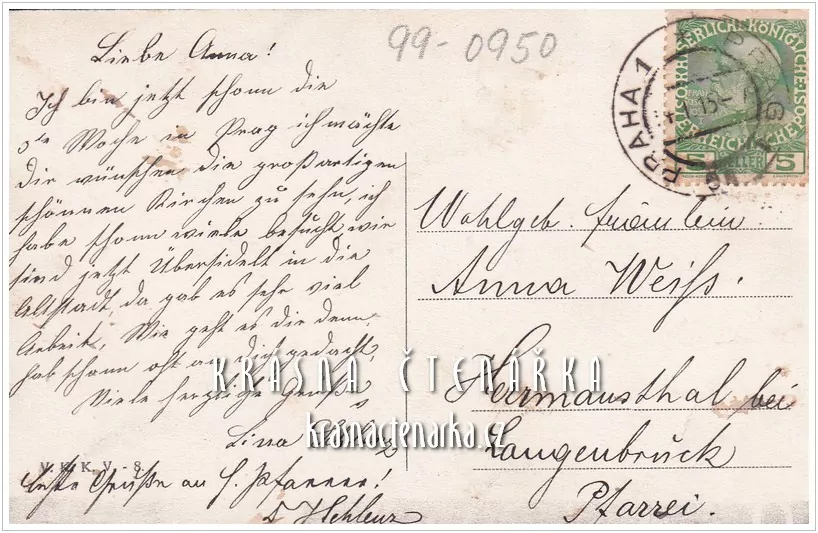 99-0950
Liebe Anna!
Ich bin jetzt schonn die
Woche in Prag ich möchte
dir wünschen die großartigen
schönnen Kirchen zu sehn, ich
habe schonn viele besucht wir
sind jetzt Übersidelt in die
Altstadt, da gab es sehr viel
Arbeit, Wie geht es dir denn,
hab schonn oft an dich gedacht,
Viele herzliche Grüße
Lina
V. K. K. V. - 8
Grüße an H. Pfarrer!
PRAHA 1
KAISERLICHE KÖNIGLICHE
ÖSTERREICHISCHE POST
5 HELLER 5
Wohlgeb. Fräulein
Anna Weiss.
Hermansthal bei
Langenbrück
Pfarrei.
KRÁSNÁ ČTENÁŘKA
krasnactenarka.cz